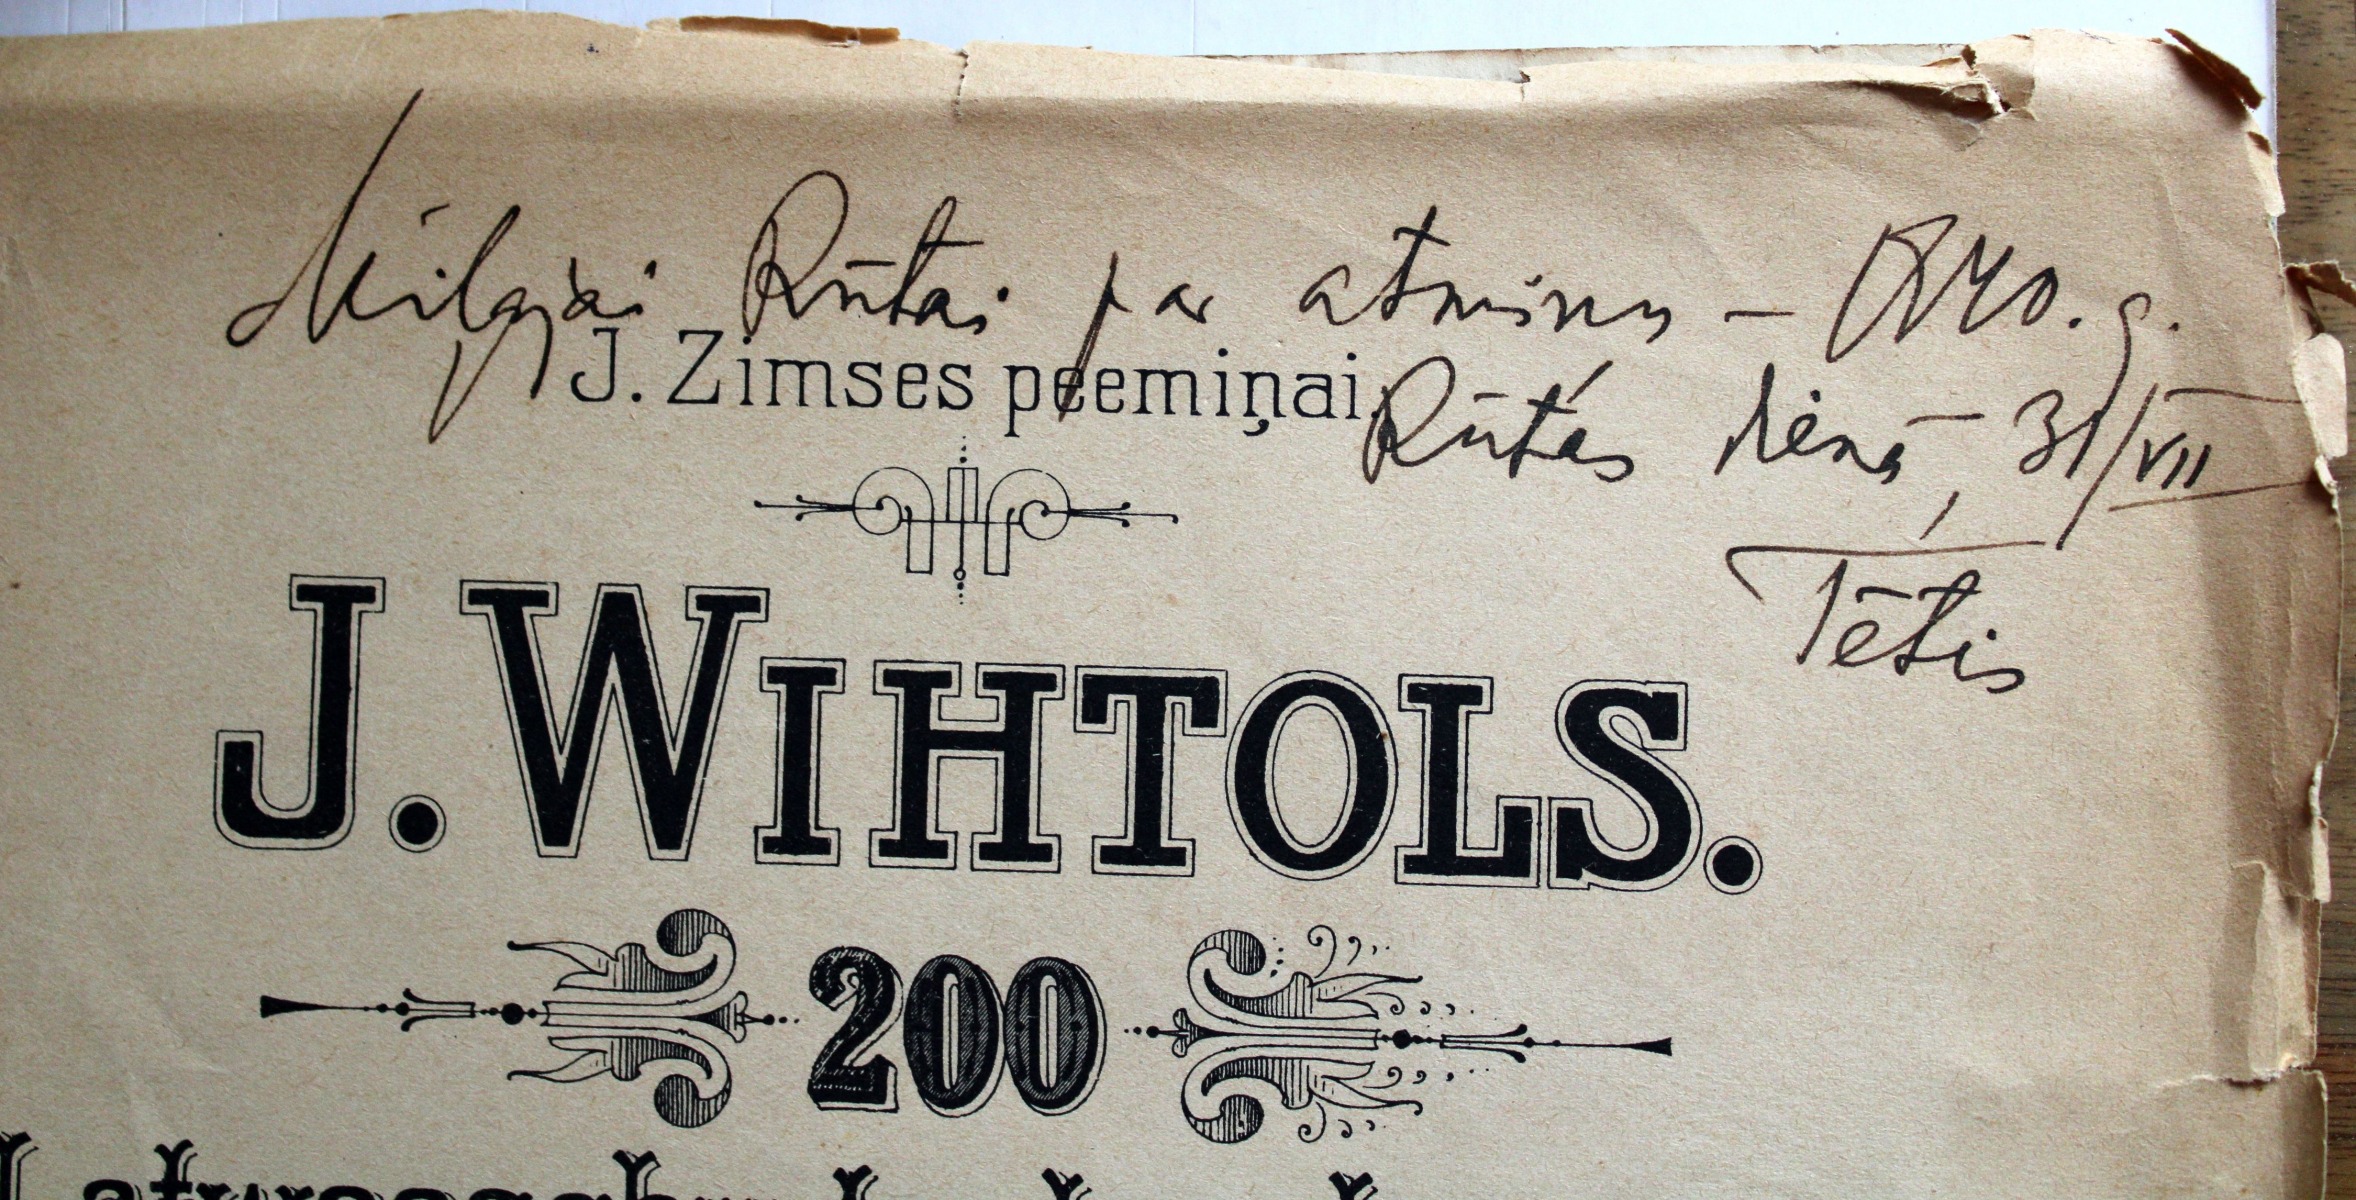 Mīļajai Rūtai par atmiņu – 1940. g.
Rūtas dienā, 31/VII
Tētis
J. Zimses peemiņai.
J. WIHTOLS.
200